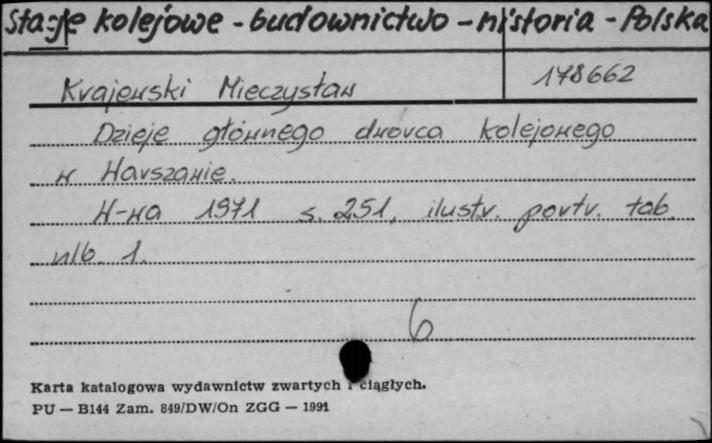 Stacje kolejowe - budownictwo - historia - Polska
Krajewski Mieczysław 178662
Dzieje głównego dworca kolejowego
w Warszawie.
W-wa 1971 s. 251, ilustr. portr. tab.
nlb. 1.
6
Karta katalogowa wydawnictw zwartych i ciągłych.
PU — B144 Zam. 849/DW/On ZGG — 1991